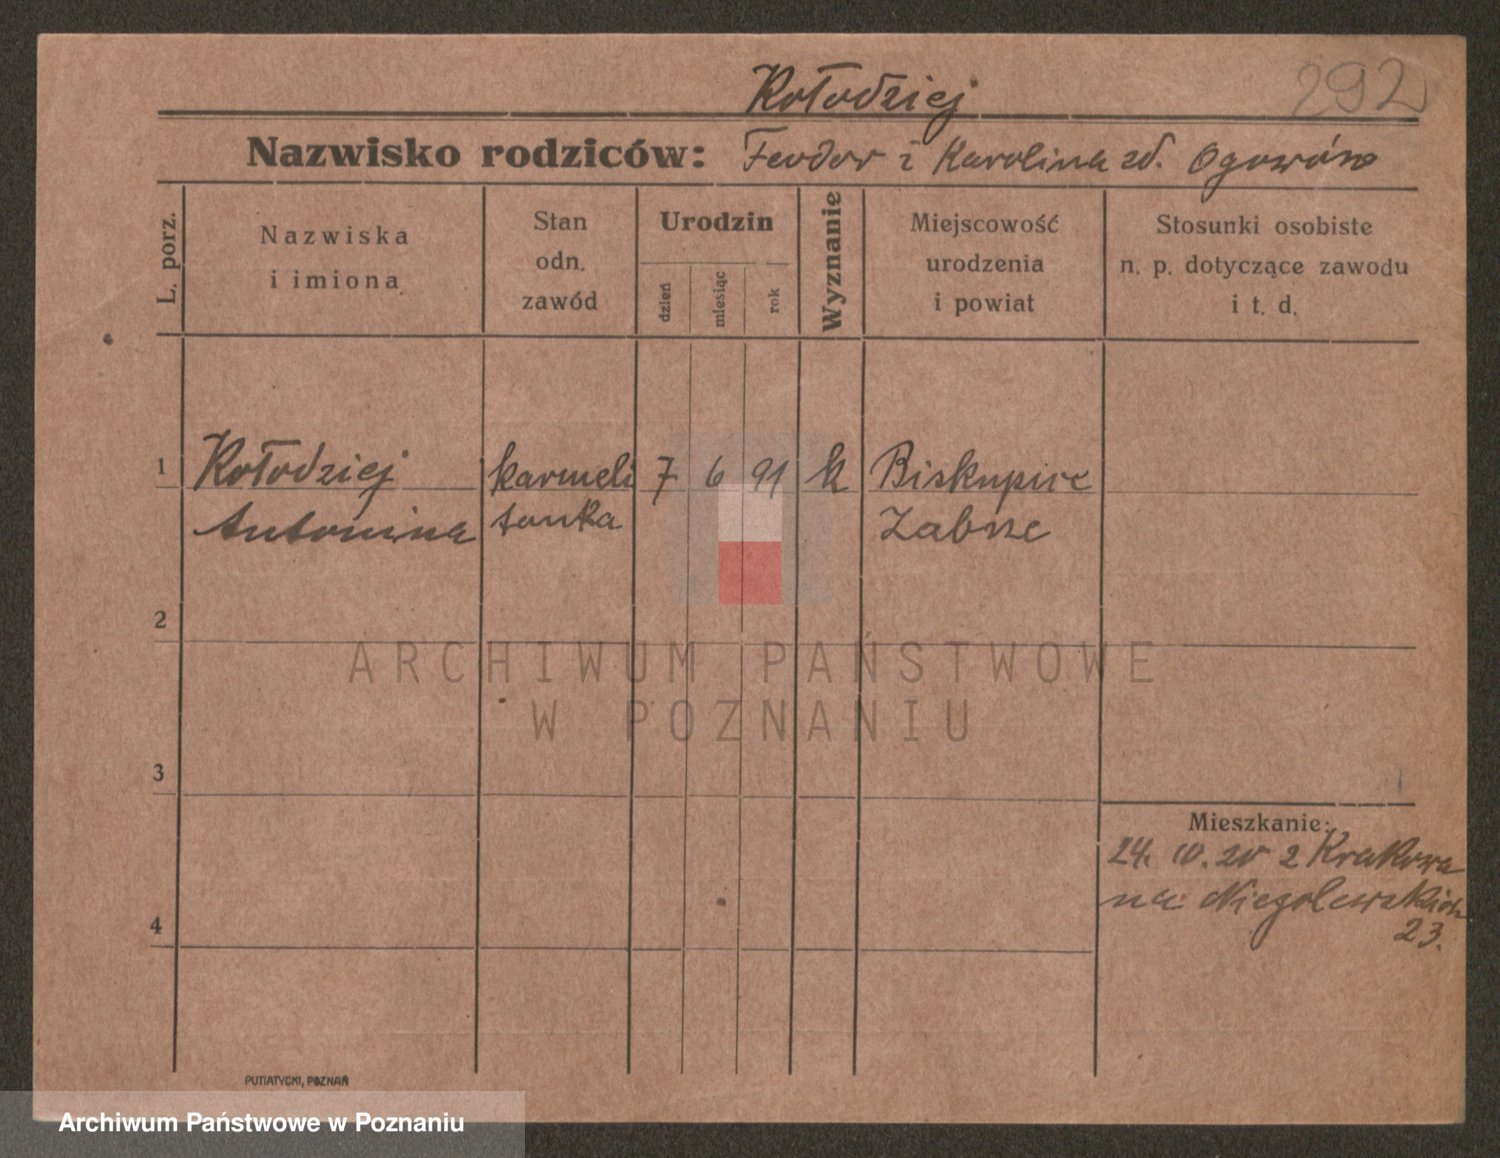 Kołodziej
292
Nazwisko rodziców: Feodor i Karolina zd.
L. porz.
Nazwiska
i imiona
Stan
odn.
zawód
Urodzin
dzień
miesiąc
rok
Wyznanie
Miejscowość
urodzenia
i powiat
Stosunki osobiste
n. p. dotyczące zawodu
i t. d.
1
Kołodziej
Antonina
karmeli
tanka
7 6 91
k
Biskupice
Zabrze
2
3
4
Mieszkanie:
24. 10. 20 z Krakowa
na Niegolewskich
23.
ARCHIWUM PAŃSTWOWE
W POZNANIU
PUTIATYCKI, POZNAŃ
Archiwum Państwowe w Poznaniu